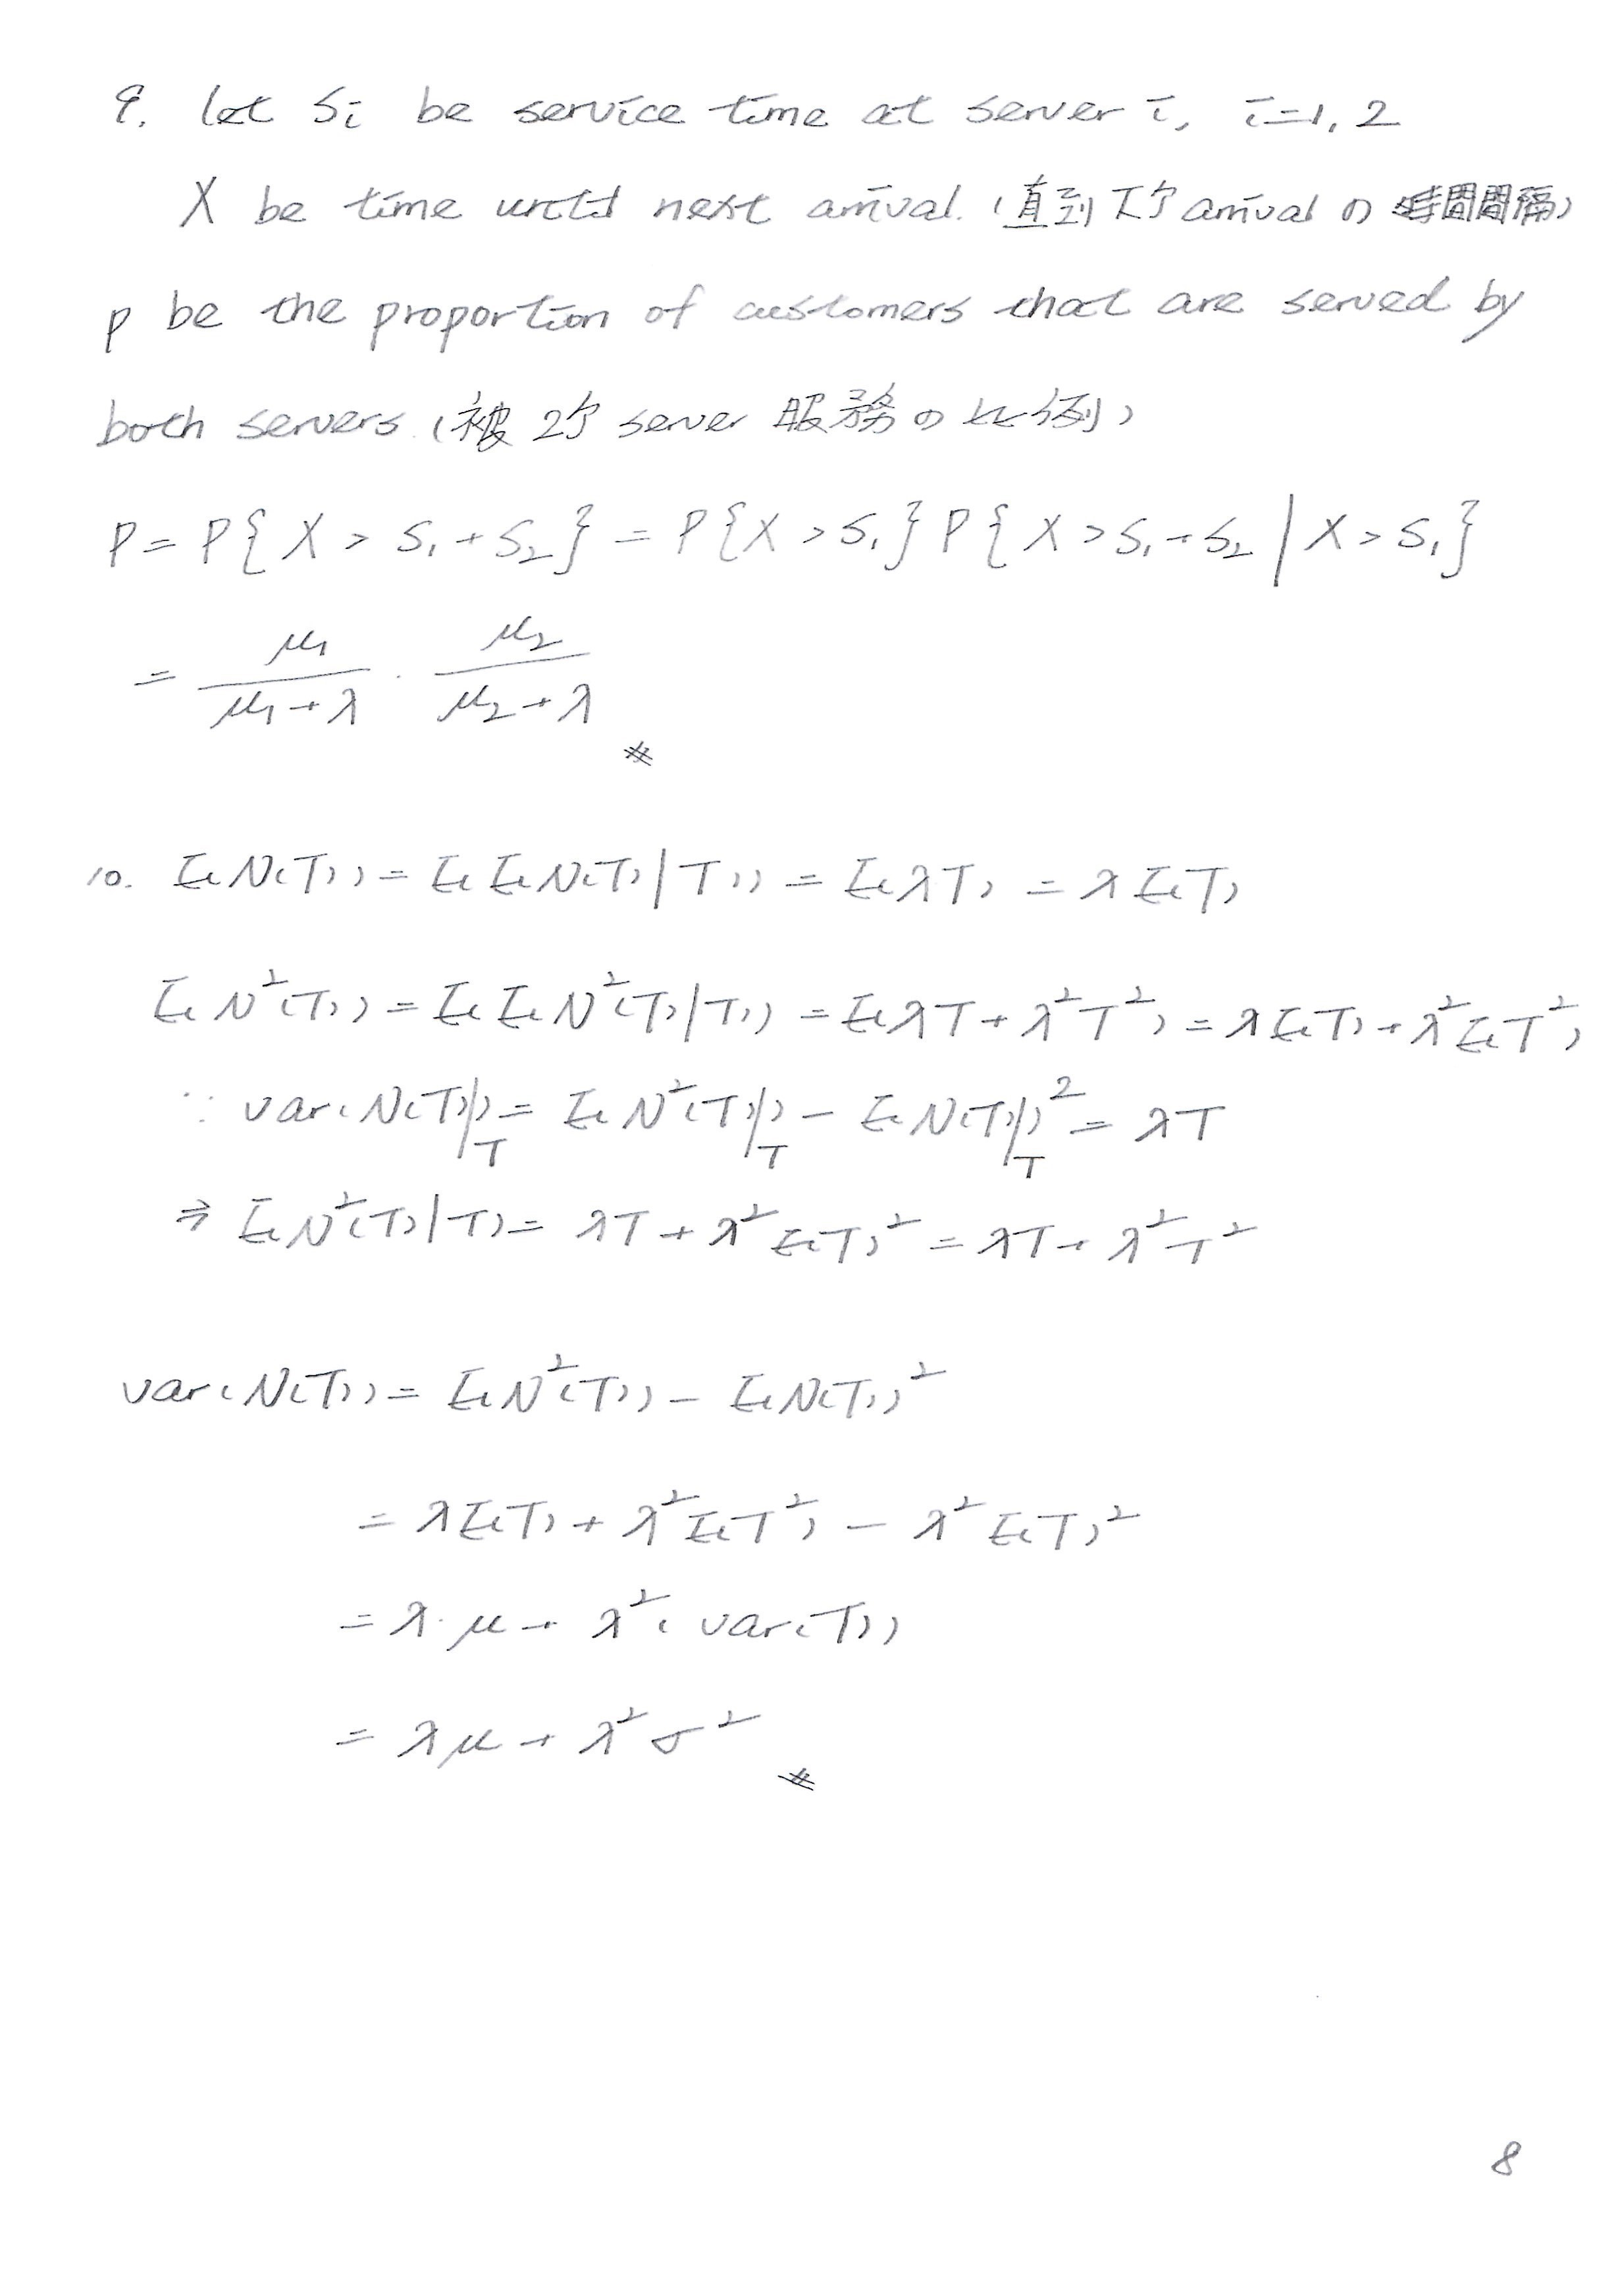 9. let Si be service time at server i, i=1, 2
X be time until next arrival. (直到下個 arrival の 時間間隔)
p be the proportion of customers that are served by
both servers. (被 2個 server 服務 の 比例)
P = P{ X > S₁ + S₂ } = P{X > S₁} P{ X > S₁ + S₂ | X > S₁ }
= μ₁/(μ₁+λ) · μ₂/(μ₂+λ) #
10. E(N(T)) = E(E(N(T)|T)) = E(λT) = λE(T)
E(N²(T)) = E(E(N²(T)|T)) = E(λT + λ²T²) = λE(T) + λ²E(T²)
∵ var(N(T)|T) = E(N²(T)|T) − E(N(T)|T)² = λT
⇒ E(N²(T)|T) = λT + λ²E(T)² = λT + λ²T²
var(N(T)) = E(N²(T)) − E(N(T))²
= λE(T) + λ²E(T²) − λ²E(T)²
= λ·μ + λ²(var(T))
= λμ + λ²σ² #
8